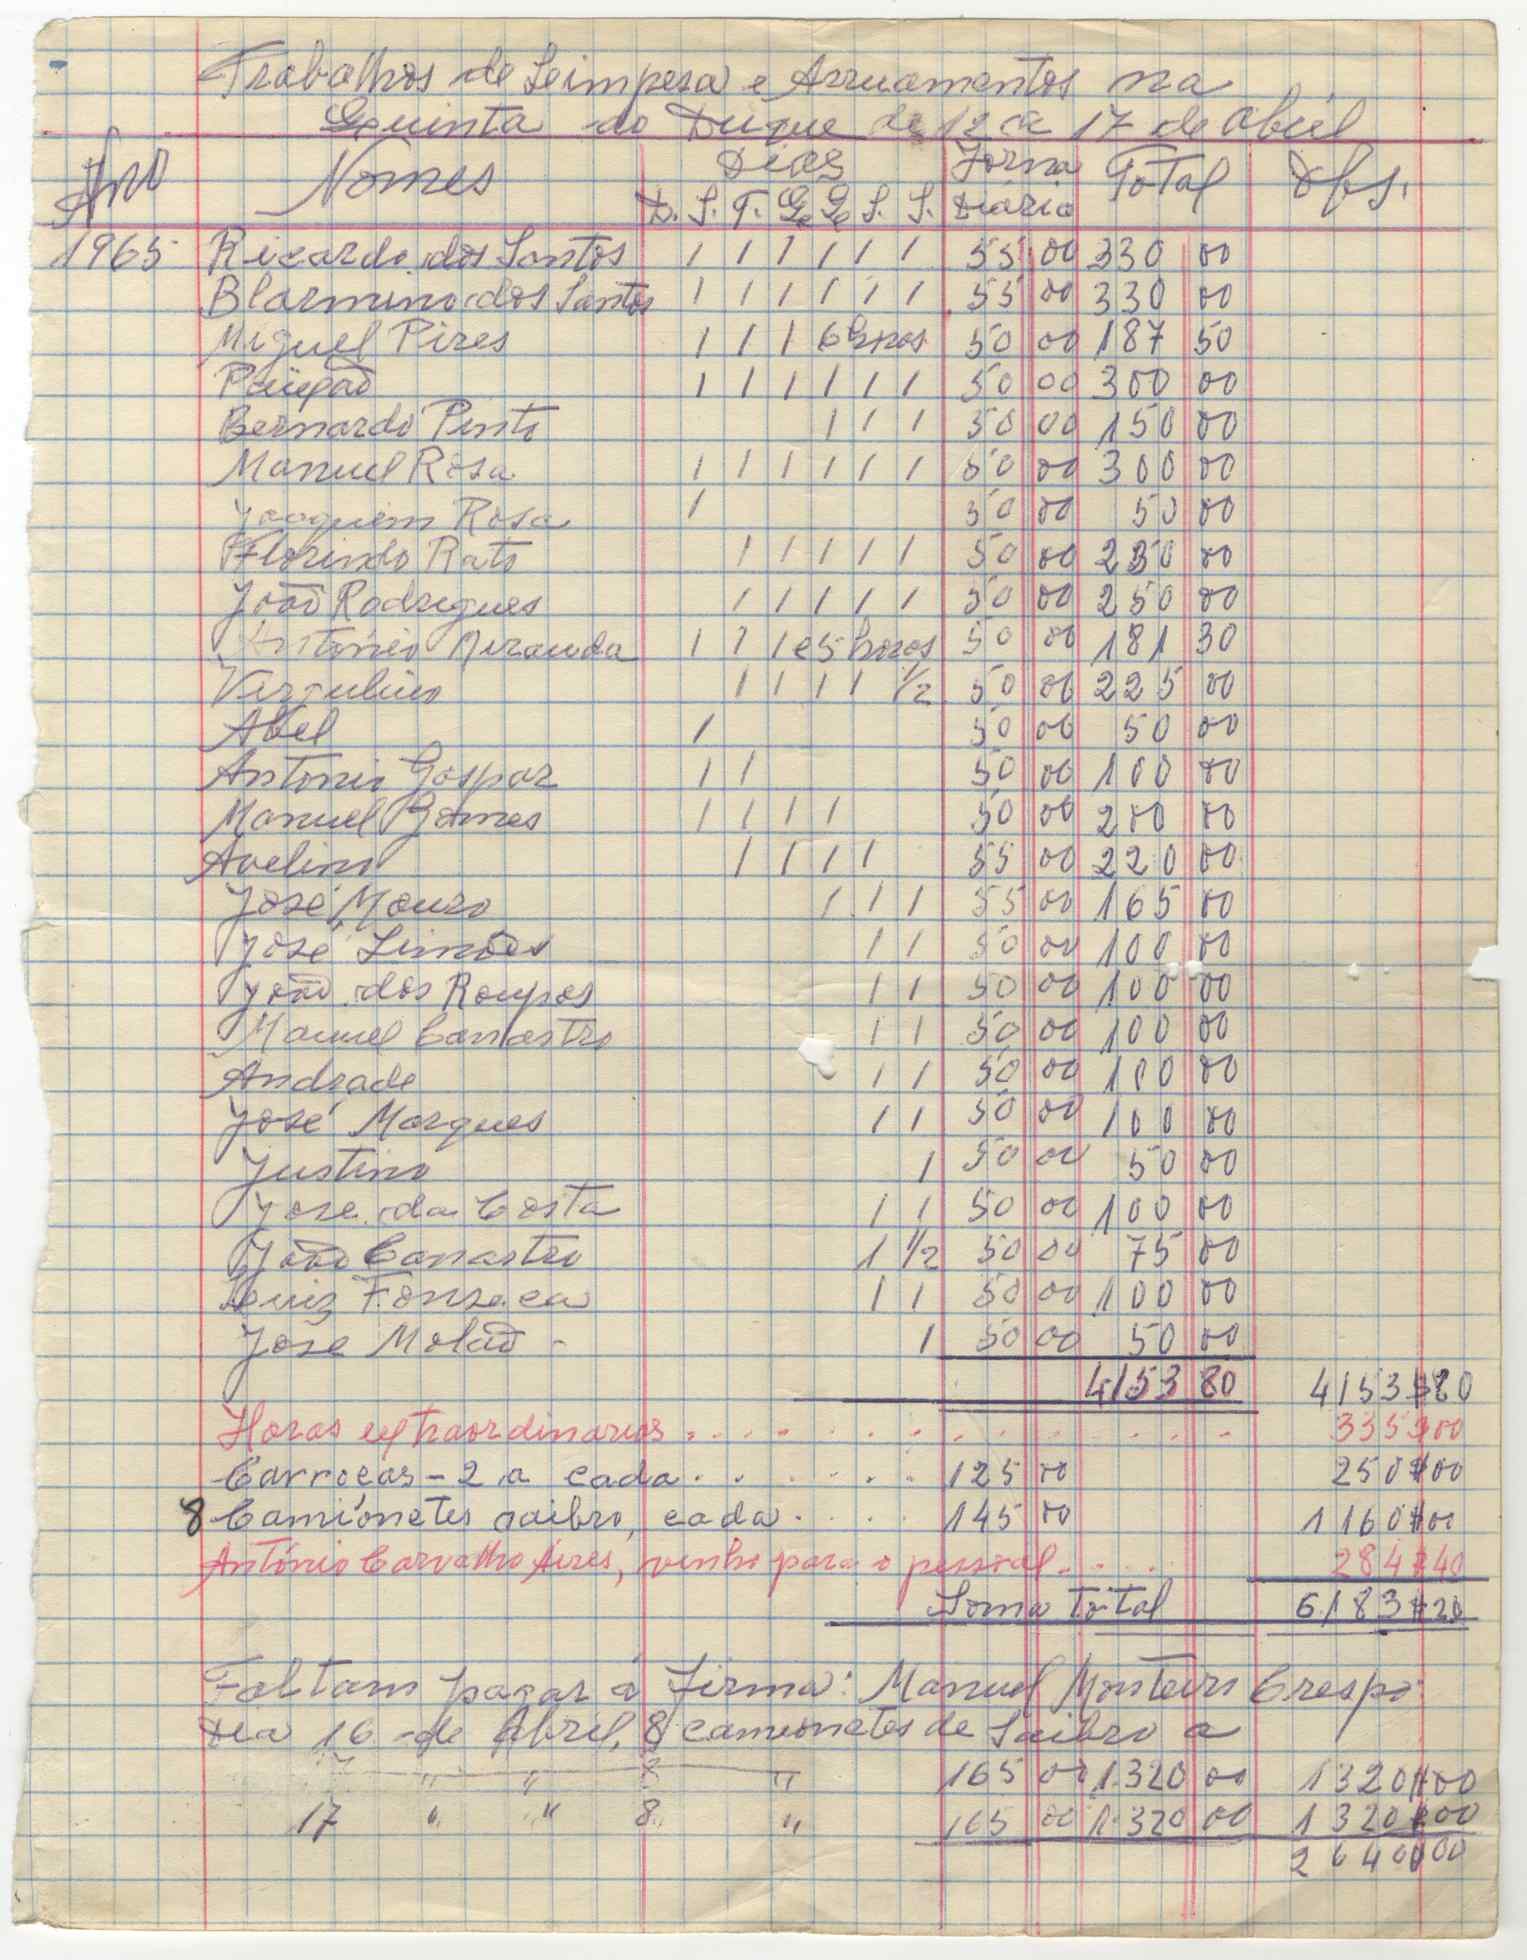 Trabalhos de Leimpesa e Arruamentos na
Quinta do Duque de 12 a 17 de abril
Ano Nomes Dias Jorna Total Obs.
D. S. T. Q. Q. S. S. Diária
1965 Ricardo dos Santos 1 1 1 1 1 1 55 00 330 00
Blarmino dos Santos 1 1 1 1 1 1 55 00 330 00
Miguel Pires 1 1 1 6 horas 50 00 187 50
1 1 1 1 1 1 50 00 300 00
Bernardo Pinto 1 1 1 50 00 150 00
Manuel Rosa 1 1 1 1 1 1 50 00 300 00
Joaquim Rosa 1 50 00 50 00
Florindo Rato 1 1 1 1 1 50 00 250 00
João Rodrigues 1 1 1 1 1 50 00 250 00
António Miranda 1 1 1 e 5 horas 50 00 181 30
Vergulino 1 1 1 1 1/2 50 00 225 00
Abel 1 50 00 50 00
Antonio Gaspar 1 1 50 00 100 00
Manuel Gomes 1 1 1 1 50 00 200 00
Avelino 1 1 1 1 55 00 220 00
José Mouro 1 1 1 55 00 165 00
José Simões 1 1 50 00 100 00
João dos Roupas 1 1 50 00 100 00
Manuel Canastro 1 1 50 00 100 00
Andrade 1 1 50 00 100 00
José Marques 1 1 50 00 100 00
Justino 1 50 00 50 00
José da Costa 1 1 50 00 100 00
João Canastro 1 1/2 50 00 75 00
Luiz Fonseca 1 1 50 00 100 00
José Molão - 1 50 00 50 00
4153 80 4153$80
Horas extraordinarias . . . . . . . . . . . . . 335$00
Carroças - 2 a cada . . . . . . 125 00 250$00
8 Camionetes saibro, cada . . . . 145 00 1160$00
António Carvalho Aires, vinho para o pessoal . . . . 284$40
Soma total 6183$20
Faltam pagar á Firma: Manuel Monteiro Crespo
Dia 16 de Abril, 8 camionetes de Saibro a
" " 8 " 165 00 1.320 00 1320$00
17 " " 8 " 165 00 1.320 00 1320$00
2640$00